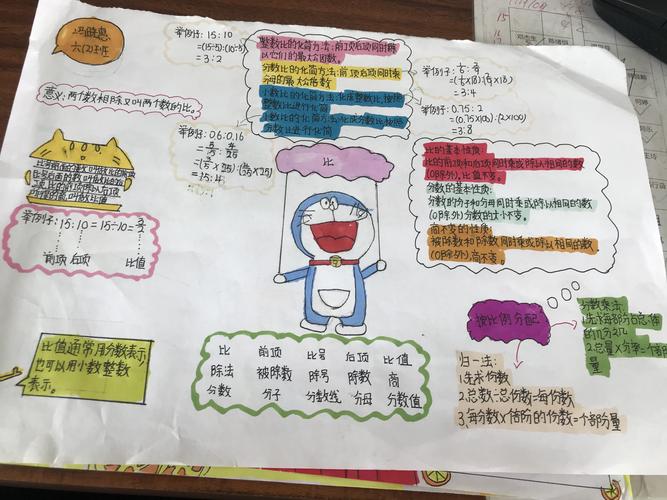 冯晓惠
六(2)班
举例子:15:10
=(15÷5):(10÷5)
=3:2
整数比的化简方法:前项后项同时除
以它们的最大公因数。
分数比的化简方法:前项后项同时乘
分母的最大公倍数
小数比的化简方法:化成整数比,按照
整数比进行化简
小数比的化简方法:化成分数比,按照
分数比进行化简
=3:4
举例子:0.75:2
=(0.75×100):(2×100)
=3:8
意义:两个数相除又叫两个数的比。
举例子:06:0.16
=15:4
比
举例子:15:10=15÷10=3/2
前项 后项 比值
比的基本性质:
比的前项和后项同时乘或除以相同的数
(0除外),比值不变。
分数的基本性质:
分数的分子和分母同时乘或除以相同的数
(0除外)分数的大小不变。
商不变的性质:
被除数和除数同时乘或除以相同的数
(0除外),商不变。
比值通常用分数表示,
也可以用小数整数
表示。
比 前项 比号 后项 比值
除法 被除数 除号 除数 商
分数 分子 分数线 分母 分数值
按比例分配
分数乘法
1.先求每部分占总体
的几分之几
2.总量×分率=
量
归一法:
1.先求份数
2.总数÷总份数=每份数
3.每分数×倍阶的份数=个部分量